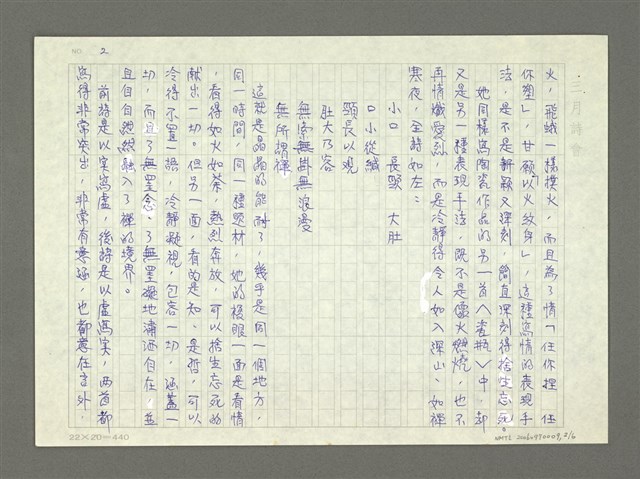 NO. 2
火，飛蛾一樣撲火，而且為了情「任你捏 任
你塑」，甘願「以火紋身」，這種寫情的表現手
法，是不是新穎又深刻，簡直深刻得捨生忘死。
她同樣寫陶瓷作品的另一首〈瓷瓶〉中，却
又是另一種表現手法，既不是儘火燃燒，也不
再情熾愛烈，而是冷靜得令人如入深山、如禪
寒夜，全詩如左：
小口 長頸 大肚
口小從緘
頸長以觀
肚大乃容
無牽無掛無浪漫
無所謂禪
這就是晶晶的能耐了，幾乎是同一個地方，
同一時間，同一種題材，她的椄眼一面是看情
，看得如火如荼，熱烈奔放，可以捨生忘死的
献出一切。但另一面，看的是知、是哲，可以
冷得不置一語，冷靜凝視，包容一切，涵蓋一
切，而且了無罣念、了無罣礙地瀟洒自在，並
且自自然然融入了禪的境界。
前詩是以實寫虛，後詩是以虛寫實，兩首都
寫得非常突出，非常有意涵，也都意在言外，
22×20=440